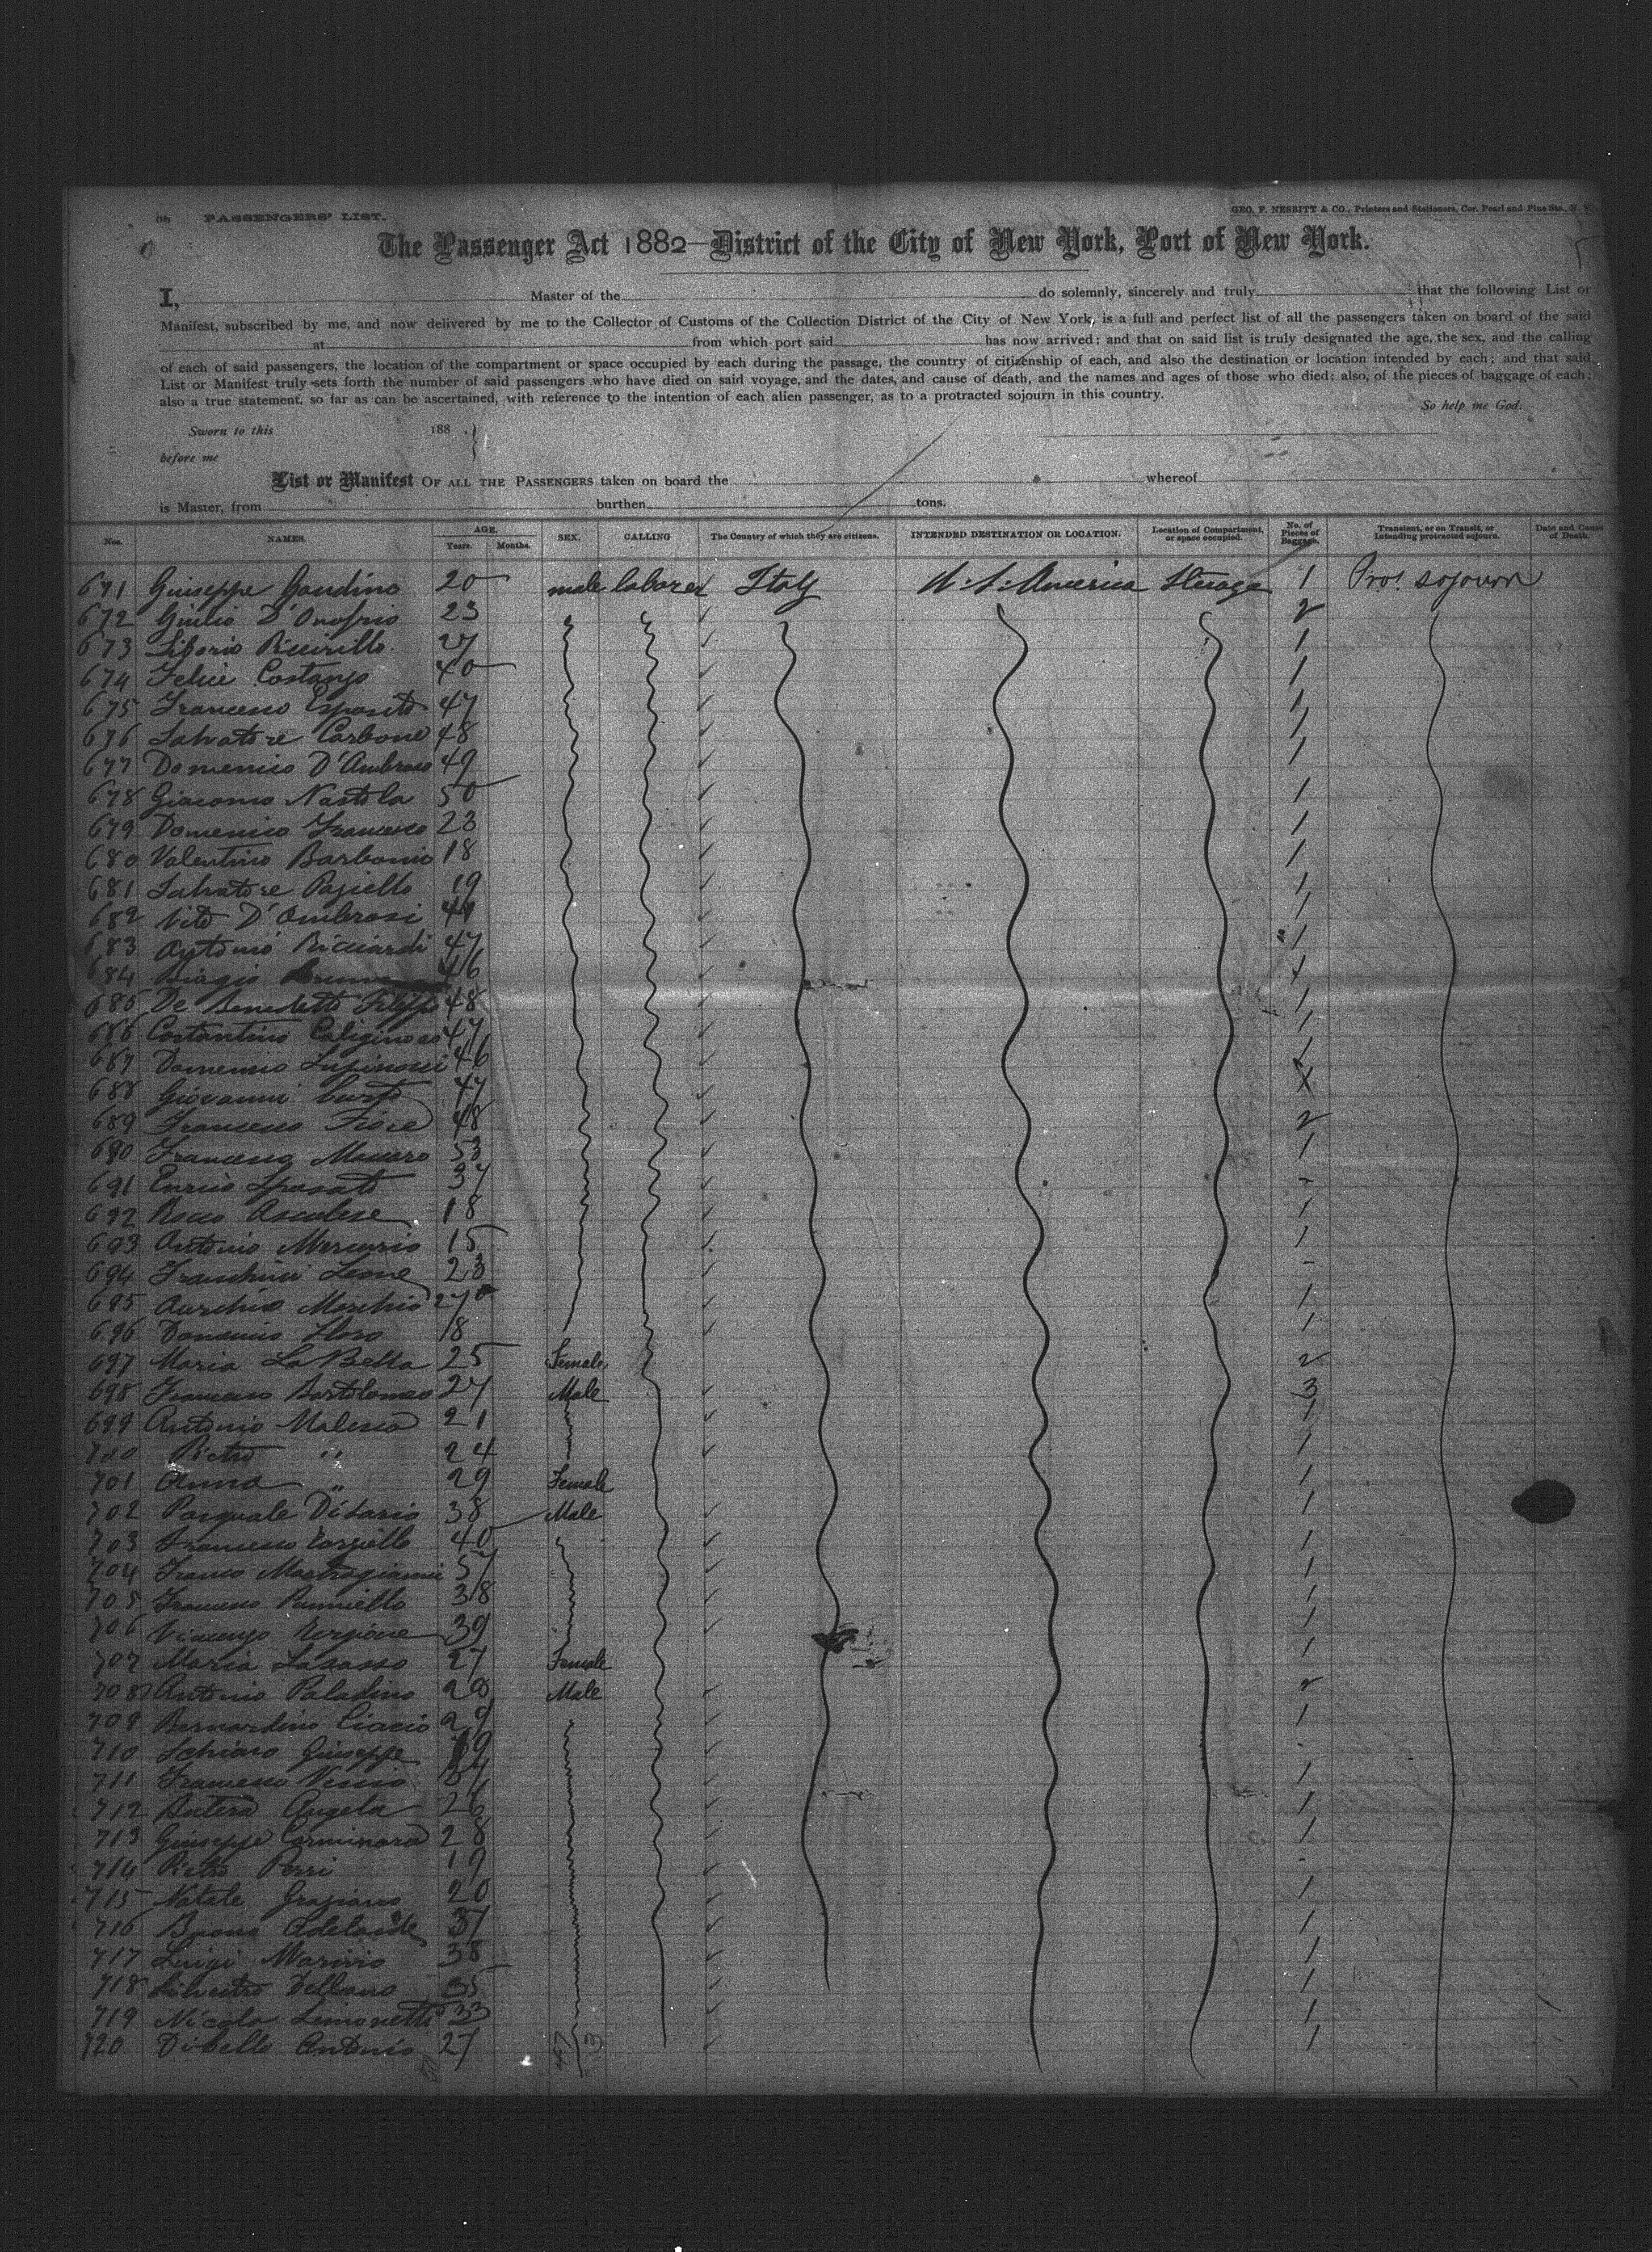 PASSENGERS' LIST.
GEO. F. NESBITT & CO., Printers and Stationers, Cor. Pearl and Pine Sts., N. Y.
The Passenger Act 1882—District of the City of New York, Port of New York.
I, Master of the do solemnly, sincerely and truly that the following List or
Manifest, subscribed by me, and now delivered by me to the Collector of Customs of the Collection District of the City of New York, is a full and perfect list of all the passengers taken on board of the said
at from which port said has now arrived; and that on said list is truly designated the age, the sex, and the calling
of each of said passengers, the location of the compartment or space occupied by each during the passage, the country of citizenship of each, and also the destination or location intended by each; and that said
List or Manifest truly sets forth the number of said passengers who have died on said voyage, and the dates, and cause of death, and the names and ages of those who died; also, of the pieces of baggage of each;
also a true statement, so far as can be ascertained, with reference to the intention of each alien passenger, as to a protracted sojourn in this country.
So help me God.
Sworn to this 188 .
before me
List or Manifest OF ALL THE PASSENGERS taken on board the whereof
is Master, from burthen tons.
Nos. NAMES. AGE. Years. Months. SEX. CALLING The Country of which they are citizens. INTENDED DESTINATION OR LOCATION. Location of Compartment, or space occupied. No. of Pieces of Baggage. Transient, or on Transit, or Intending protracted sojourn. Date and Cause of Death.
671 Giuseppe Gaudino 20 male laborer Italy U. S. America Sterage 1 Pro! sojourn
672 Giulio D'Onofrio 23 2
673 Liborio 27 1
674 Felice Costanzo 40 1
675 Francesco Esposito 47 1
676 Salvatore Carbone 48 1
677 Domenico D'Ambroso 49 1
678 Giacomo Nastola 50 1
679 Domenico Francesco 23 1
680 Valentino Barbonio 18 1
681 Salvatore Pagiello 19 1
682 Vito D'Ambrosi 1
683 Antonio Ricciardi 47 1
684 Biagio 46
685 De Benedetto Filippo 48 1
686 Costantino Caliginoso 47 1
687 Domenico Lupinocci 46 1
688 Giovanni 47
689 Francesco Fiore 48 2
690 Francesco Massaro 53 1
691 Enrico Sposato 37 -
692 Rocco Ascolese 18 1
693 Antonio Mercurio 15 1
694 Franchini Leone 23 -
695 Marchio 27 1
696 Domenico 18 1
697 Maria La Bella 25 Female 2
698 Francesco Bartolomeo 27 Male 3
699 Antonio Malesco 21 1
700 Pietro " 24 1
701 Anna " 29 Female 1
702 Pasquale Ditario 38 Male 1
703 Francesco 40 1
704 Franco Mastrogianni 57 1
705 Francesco Panniello 38 1
706 Vincenzo 39 1
707 Maria Lasasso 27 Female 1
708 Antonio Paladino 28 Male 2
709 Bernardino Ciacio 29 1
710 Schiavo Giuseppe -
711 Francesco 1
712 Butera Angela 26 1
713 Giuseppe Carminara 28 1
714 Pietro Perri 19 -
715 Natale Graziano 20 1
716 Buono Adelaide 37 1
717 Luigi Marino 38 1
718 Silvestro Dellano 35 1
719 Nicola Simonetti 33 1
720 Dibello Antonio 27 1